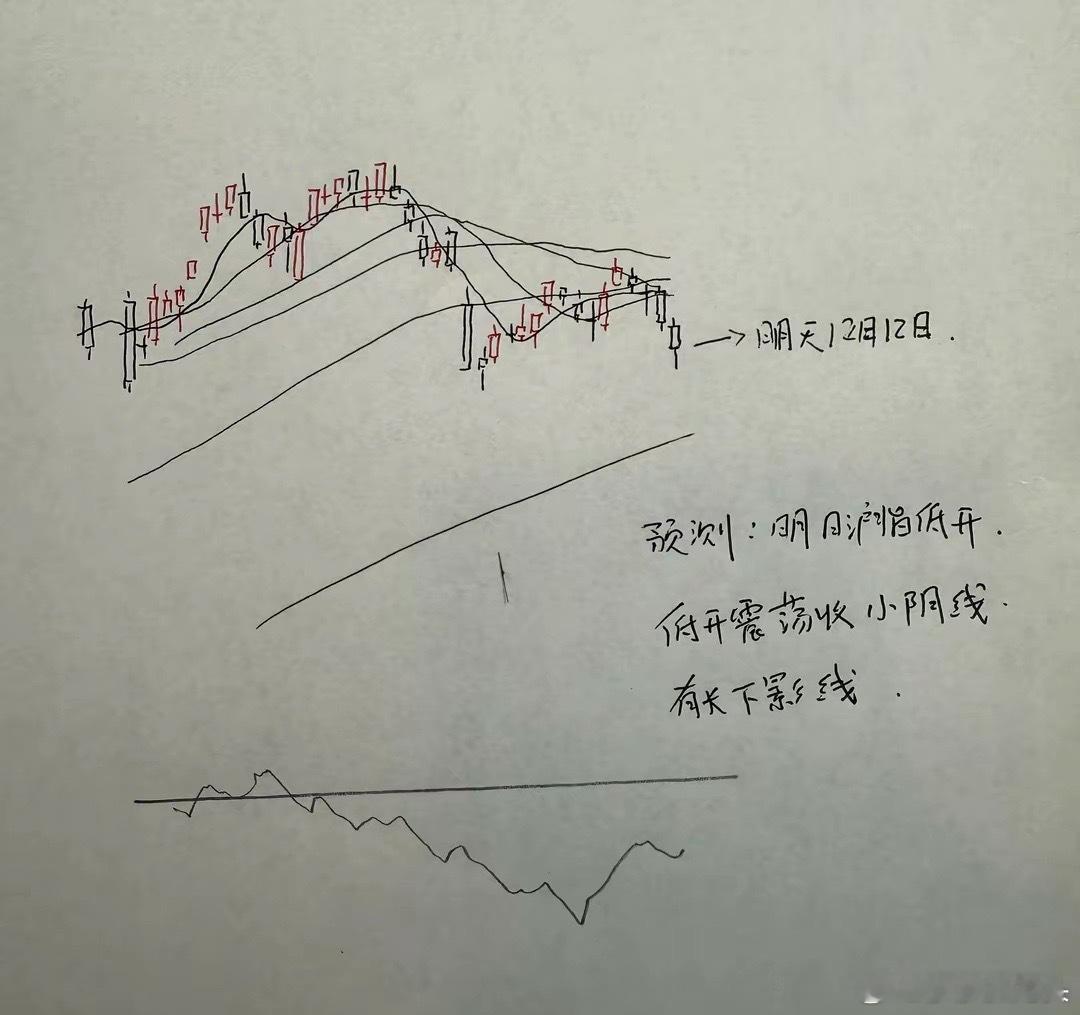 明天12月12日.
预测：明日沪指低开.
低开震荡收小阴线.
有长下影线.